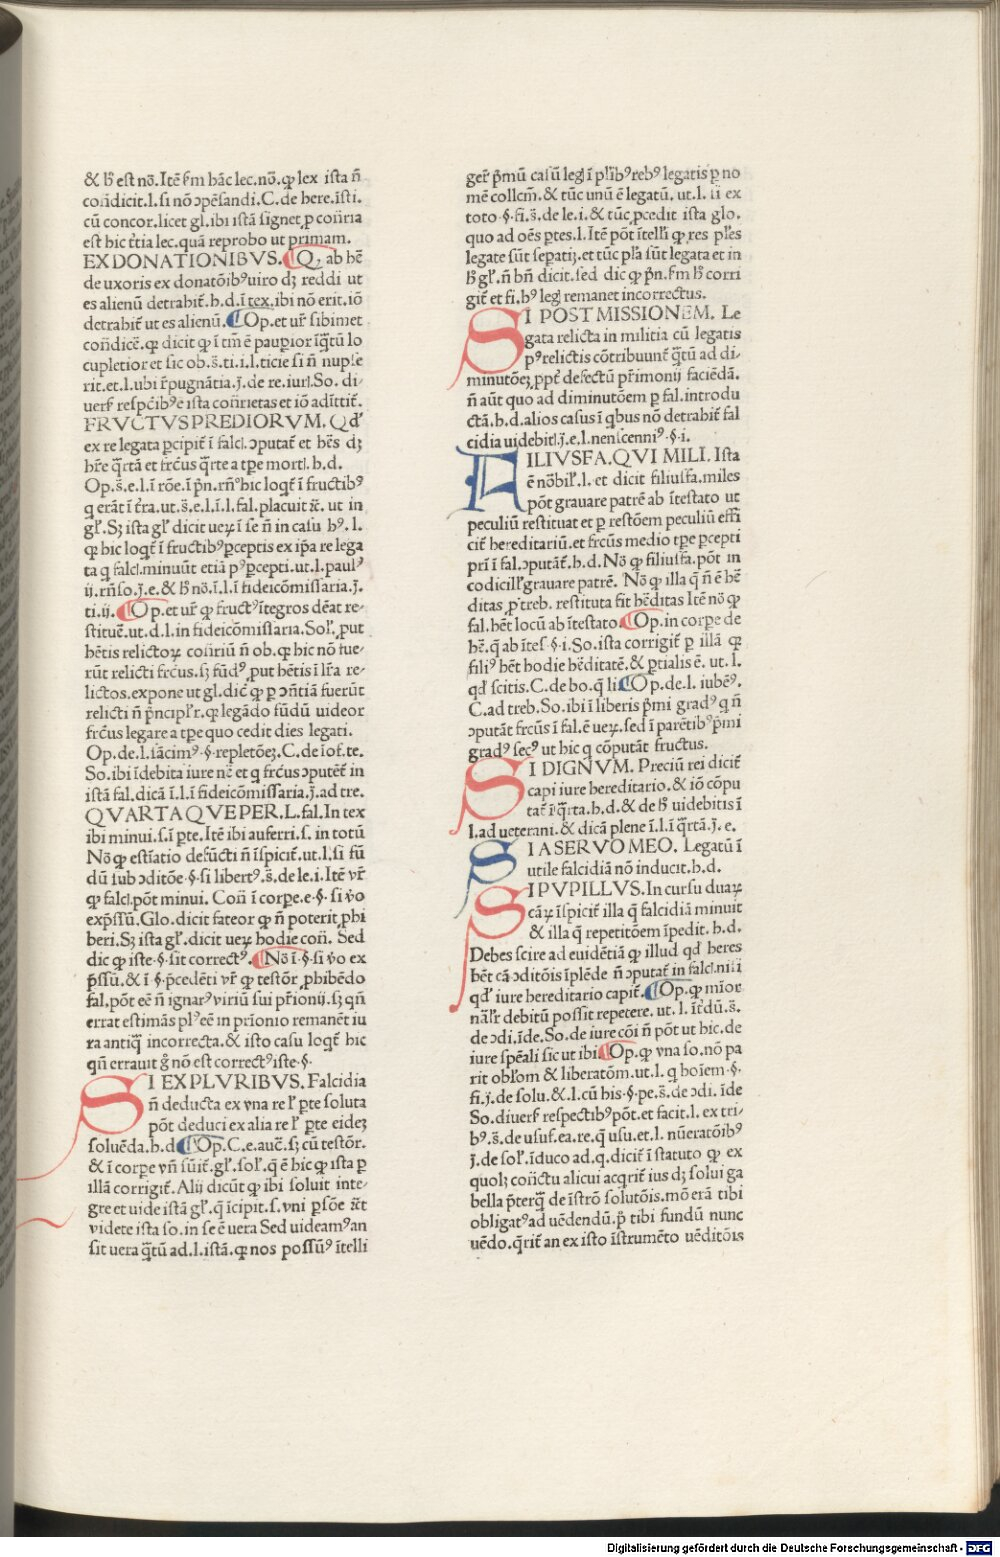 & hꝰ est nō. Itē ẜm hāc lec. nō. ꝙ lex ista ñ
cōdicit. l. si nō ɔpēsandi. C. de here. īsti.
cū concor. licet gl. ibi istā signet, ꝓ coñria
est hic t̄tia lec. quā reprobo ut primam.
EX DONATIONIBVS. Q, ab hē
de uxoris ex donatōibꝰ uiro dꝫ reddi ut
es alienū detrahit̄. h. d. ī tex. ibi nō erit. iō
detrahit̄ ut es alienū. Op. et ur̄ sibimet
cōdicē. ꝙ dicit ꝙ ī tm̄ ē paupior īq̄tū lo
cupletior et sic ob. s̄. ti. i. l. ticie si ñ nupse
rit. et. l. ubi r̄pugnātia. j. de re. iurl. So. di-
uerẜ respc̄ibꝰ ē ista coñrietas et iō adīttit̄.
FRVCTVS PREDIORVM. Qđ
ex re legata ꝑcipit̄ ī falcl. ɔputat̄ et hēs dꝫ
hr̄e q̄rtā et frc̄us q̄rte a tꝑe mortl. h. d.
Op. s̄. e. l. ī rōe. ī pn̄. rñº hic loqt̄ ī fructibꝰ
q erāt ī t̄ra. ut. s̄. e. l. ī. l. fal. placuit ⁊c̄. ut in
gl̄. Sꝫ ista gl̄ dicit ueꝝ ī se ñ in casu hꝰ. l.
ꝙ hic loqt̄ ī fructibꝰ ꝑceptis ex ip̄a re lega
ta q falcl. minuūt etiā pꝰ ꝑcepti. ut. l. paulꝰ
ij. rñso. j. e. & hꝰ nō. ī. l. ī fideicōmissaria. j.
ti. ij. Op. et ur̄ ꝙ fructꝰ ītegros dēat re-
stituē. ut. d. l. in fideicōmissaria. Sol̄. put
hētis relictoꝝ coñriū ñ ob. ꝙ hic nō fue-
rūt relicti frc̄us. sꝫ fūdꝰ, put hētis ī lr̄a re-
lictos. expone ut gl. dic̄ ꝙ ꝑ ɔñtiā fuerūt
relicti ñ p̄ncipl̄r. ꝙ legādo fūdū uideor
frc̄us legare a tꝑe quo cedit dies legati.
Op. de. l. iācimꝰ. §. repletōeꝫ. C. de iof. te.
So. ibi īdebita iure nc̄ et q frc̄us ɔputēt̄ in
istā fal. dicā ī. l. ī fideicōmissaria. j. ad tre.
QVARTAQVE PER. L. fal. In tex
ibi minui. s. ī ꝑte. Itē ibi auferri. s. in totū
Nō ꝙ estīatio defūcti ñ īspicit̄. ut. l. si fū
dū sub ɔditōe. §. si libertꝰ. s̄. de le. i. Itē vr̄
ꝙ falcl. pōt minui. Coñ ī corꝑe. e. §. si v̄o
exp̄ssū. Glo. dicit fateor ꝙ ñ poterit ꝓhi
beri. Sꝫ ista gl̄. dicit ueꝝ hodie coñ. Sed
dic ꝙ iste. §. sit correctꝰ. Nō ī. §. si v̄o ex
p̄ssū. & ī. §. p̄cedēti vr̄ ꝙ testōr̄, ꝓhibēdo
fal. pōt eē ñ ignarꝰ viriū sui pr̄ionij. sꝫ qñ
errat estimās plꝰ eē in prīonio remanēt iu
ra antiq̄ incorrecta. & isto casu loqt̄ hic
qñ errauit ḡ nō est correctꝰ iste. §.
SI EX PLVRIBVS. Falcidia
ñ deducta ex vna re l̄ ꝑte soluta
pōt deduci ex alia re l̄ ꝑte eideꝫ
soluēda. h. d. Op. C. e. auc̄. sꝫ cū testōr̄.
& ī corꝑe vñ sūit̄. gl̄. sol̄. q ē hic ꝙ ista ꝑ
illā corrigit̄. Alij dicūt ꝙ ibi soluit inte-
gre et uide istā gl̄. q̄ īcipit. s. vni ꝑsōe ⁊c̄t
videte ista so. in se ē uera Sed uideamꝰ an
sit uera q̄tū ad. l. istā. ꝙ nos possūꝰ ītelli
ger̄ p̄mū casū legl ī pl̄ibꝰ rebꝰ legatis ꝑ no
mē collcm̄. & tūc unū ē legatū. ut. l. ii ex
toto. §. fi. s̄. de le. i. & tūc ꝓcedit ista glo.
quo ad oēs ꝑtes. l. Itē pōt ītelli ꝙ res pl̄es
legate sūt seꝑatī. et tūc pl̄a sūt legata et in
hꝰ gl̄. ñ bñ dicit. sed dic ꝙ pn̄. ẜm hꝰ corri
git̄ et fi. hꝰ legl remanet incorrectus.
SI POST MISSIONEM. Le
gata relicta in militia cū legatis
pꝰ relictis cōtribuunt̄ q̄tū ad di-
minutōeꝫ, ppt̄ defectū pr̄imonij faciēdā.
ñ aūt quo ad diminutōem ꝑ fal. introdu
ctā. h. d. alios casus ī qbus nō detrahit̄ fal
cidia uidebitl. j. e. l. nenicenniꝰ. §. i.
FILIVSFA. QVI MILI. Ista
ē nōbil̄. l. et dicit filiusfa. miles
pōt grauare patrē ab ītestato ut
peculiū restituat et ꝑ restōem peculiū effi
cit̄ hereditariū. et frc̄us medio tꝑe ꝑcepti
pri ī fal. ɔputāt̄. h. d. Nō ꝙ filiusfa. pōt in
codicill̄ grauare patrē. Nō ꝙ illa q̄ ñ ē hē
ditas p treb. restituta fit hēditas Itē nō ꝙ
fal. hēt locū ab ītestato. Op. in corꝑe de
hē. q̄ ab ītes. §. i. So. ista corrigit̄ ꝑ illā ꝙ
filiꝰ hēt hodie hēditatē. & ꝑtialis ē. ut. l.
qđ scitis. C. de bo. q̄ li. Op. de. l. iubēꝰ.
C. ad treb. So. ibi ī liberis p̄mi gradꝰ q ñ
ɔputāt frc̄us ī fal. ē ueꝝ. sed ī parētibꝰ p̄mi
gradꝰ secꝰ ut hic q cōputāt fructus.
SI DIGNVM. Preciū rei dicit̄
capi iure hereditario. & iō cōpu
tat̄ ī q̄rta. h. d. & de hꝰ uidebitis ī
l. ad ueterani. & dicā plene ī. l. ī q̄rtā. j. e.
SI A SERVO MEO. Legatū ī
utile falcidiā nō inducit. h. d.
SI PVPILLVS. In cursu duaꝝ
cāꝝ īspicit̄ illa q̄ falcidiā minuit
& illa q̄ repetitōem īpedit. h. d.
Debes scire ad euidētiā ꝙ illud qđ heres
hēt cā ɔditōis īplēde ñ ɔputat̄ in falcl. nisi
qđ iure hereditario capit̄. Op. ꝙ mīor
nāl̄r debitū possit repetere. ut. l. īt̄dū. s̄.
de ɔdi. īde. So. de iure cōi ñ pōt ut hic. de
iure spēali sic ut ibi. Op. ꝙ vna so. nō pa
rit obl̄om & liberatōm. ut. l. q hoīem. §.
fi. j. de solu. & l. cū his. §. pe. s̄. de ɔdi. īde
So. diuerẜ respectibꝰ pōt. et facit. l. ex tri-
bꝰ. s̄. de usuf. ea. re. q̄ usu. et. l. nūeratōibꝰ
j. de sol̄. īduco ad. q. dicit̄ ī statuto ꝙ ex
quolꝫ coñctu alicui acqrit̄ ius dꝫ solui ga
bella p̄terq̄ de īstrō solutōis. mō erā tibi
obligatꝰ ad uēdendū. p̄ tibi fundū nunc
uēdo. q̄rit̄ an ex isto īstrumēto uēditōis
Digitalisierung gefördert durch die Deutsche Forschungsgemeinschaft - DFG